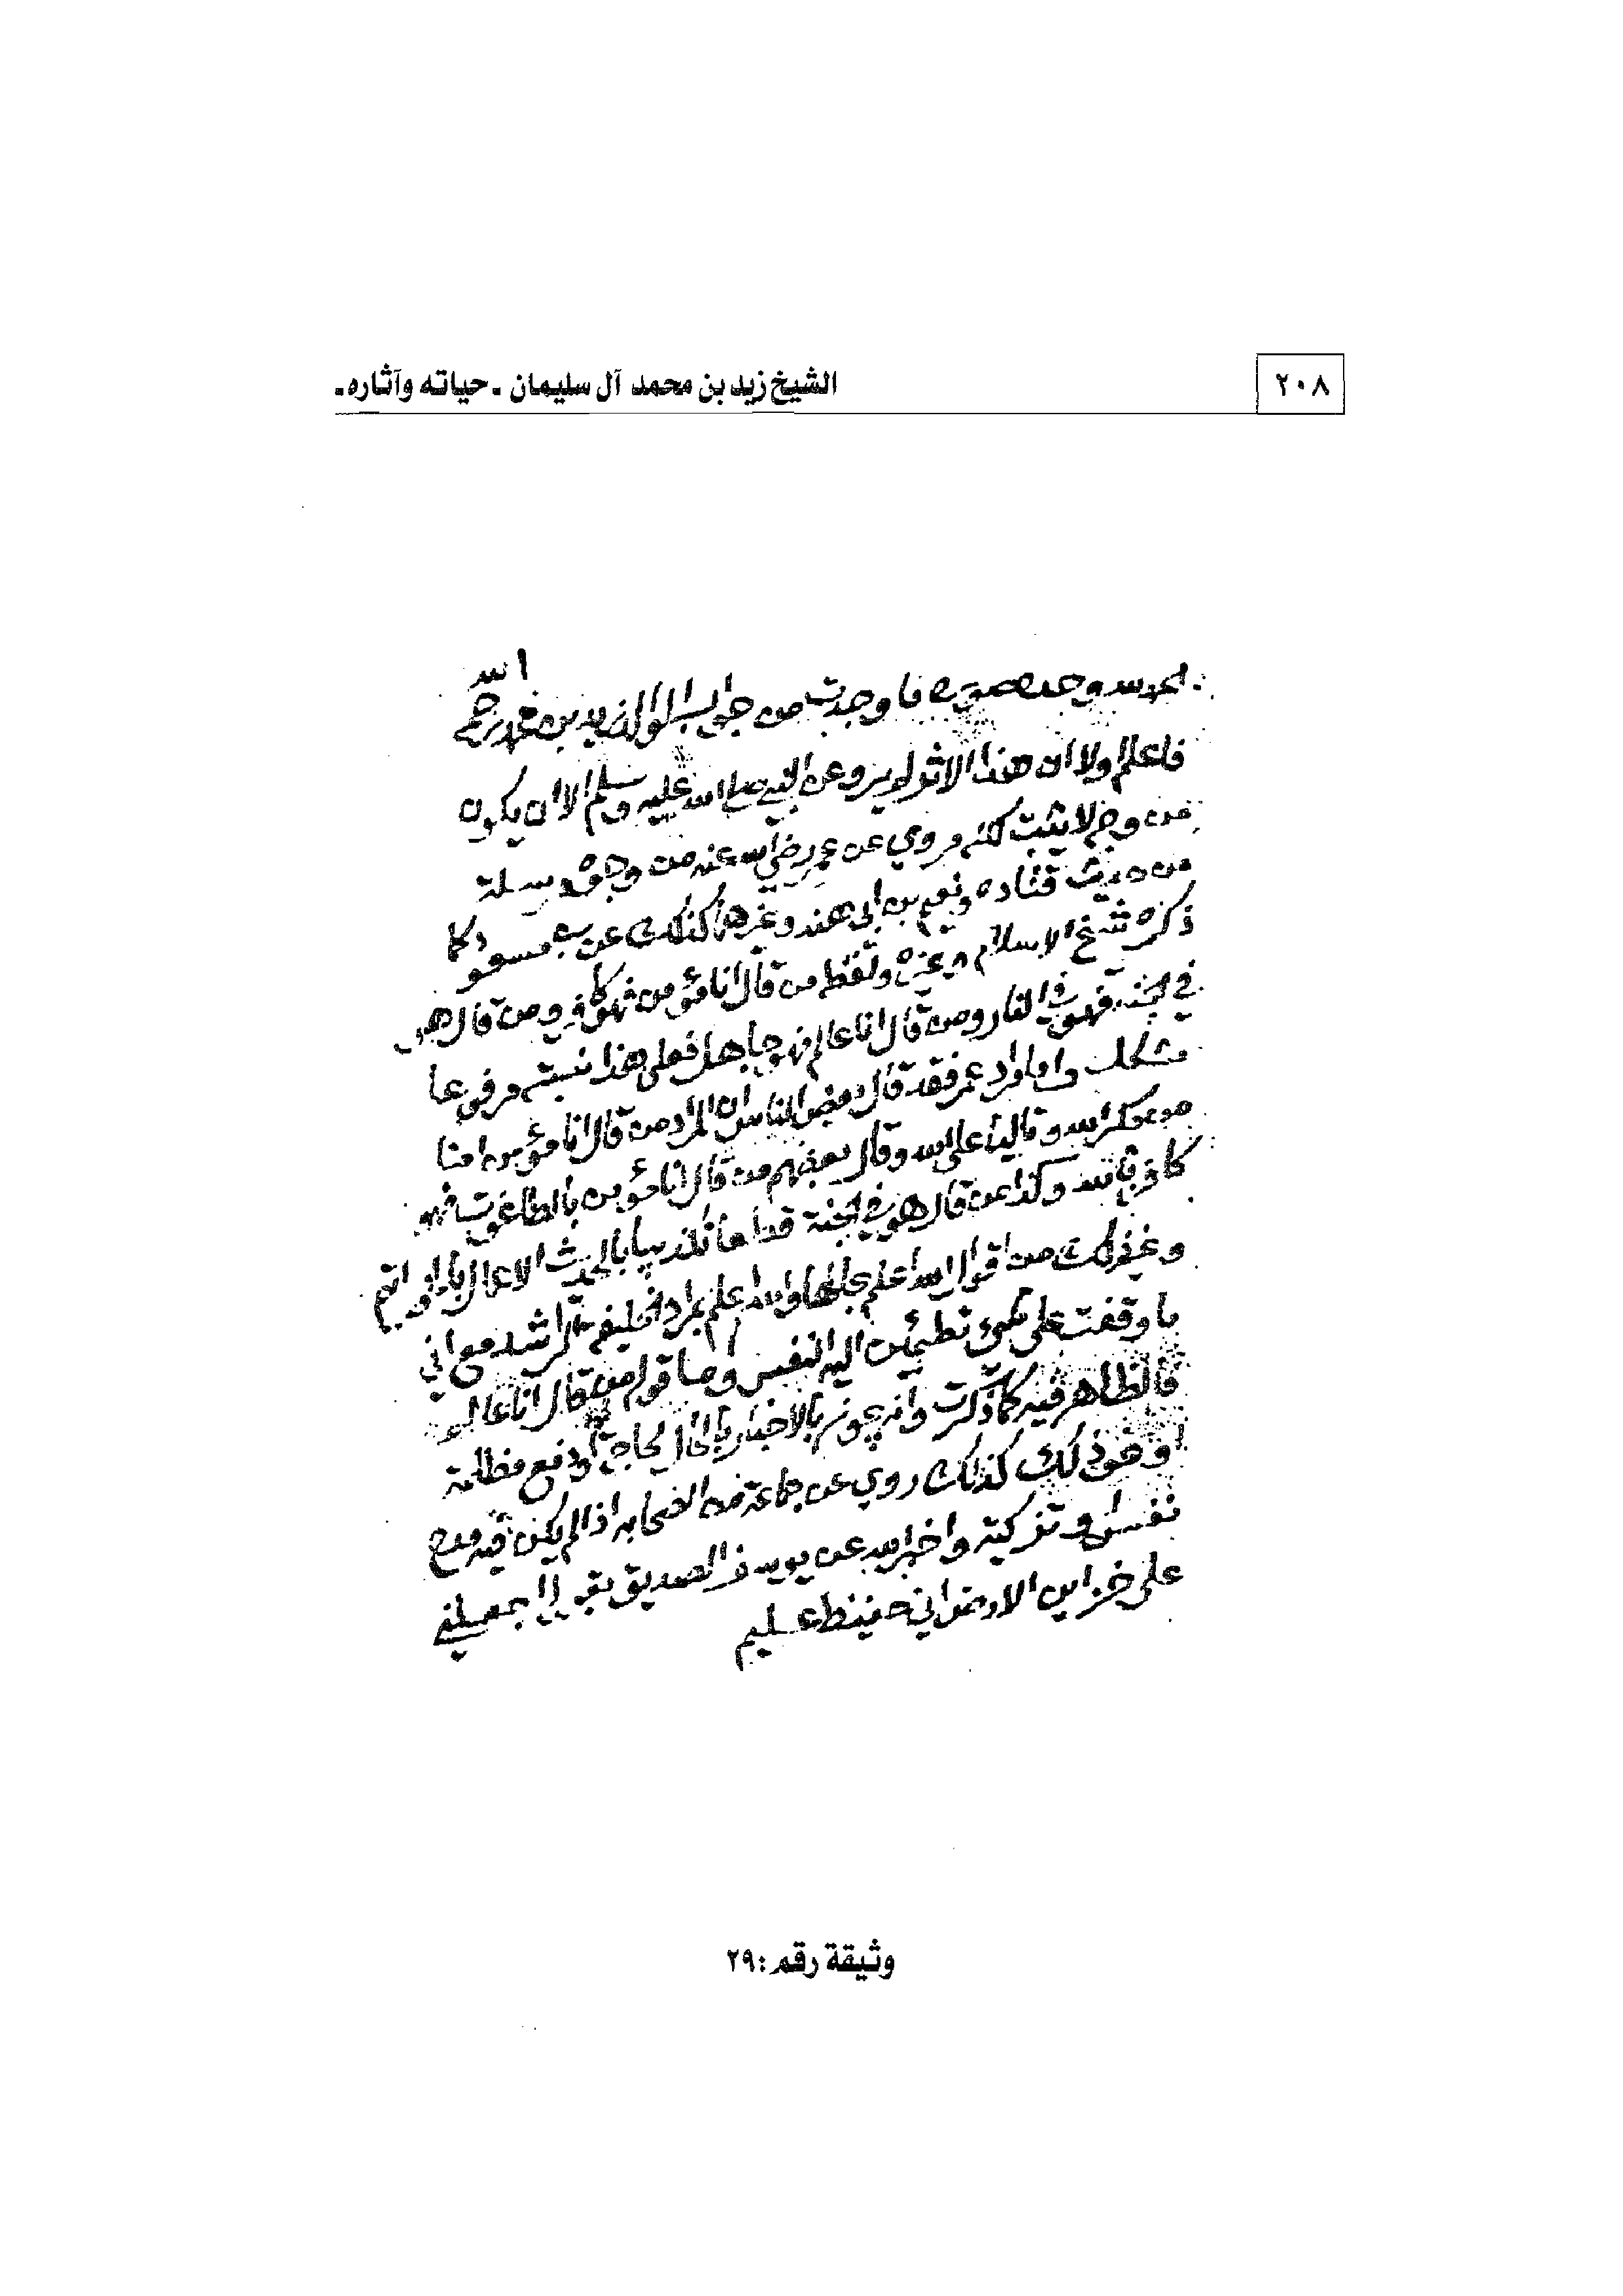 ٢٠٨
الشيخ زيد بن محمد آل سليمان ـ حياته وآثاره ـ
الحمد لله وحده صورة ما وجدت من جواب الوالد زيد بن محمد رحمه الله
فاعلم اولا ان هذا الاثر لم يرو عن النبي صلى الله عليه وسلم الا ان يكون
من وجه لا يثبت لكنه مروي عن عمر رضي الله عنه من وجوه مرسلة
من حديث قتاده ونعيم بن ابي هند وغيرهما كذلك عن بن مسعود كما
ذكره شيخ الاسلام وغيره ولفظه من قال انا مؤمن فهو كافر ومن قال هو
في الجنة فهو في النار ومن قال انا عالم فهو جاهل فعلى هذا نسبته مرفوعا
مشكل واما مراد عمر فقد قال بعض الناس ان المراد من قال انا مؤمن امنا
من مكر الله وتاليا على الله وقال بعضهم من قال انا مؤمن بالطاغوت فهو
كافر بالله وكذا من قال هو في الجنة قطعا تكذيبا بالحديث الاعمال بالخواتيم
وغير ذلك من اقوال الله اعلم بحالها والله اعلم بمراد الخليفة الراشد مع اني
ما وقفت على شيء تطمئن اليه النفس واما قوله من قال انا عالم
فالظاهر فيه كما ذكرت وانه يجوز بالاخبار بالحال لحاجة او دفع مظلمة
او نحو ذلك كذلك روي عن جماعة من الصحابه اذا لم يكن فيه مدح
نفس وتزكية واخبر الله عن يوسف الصديق بقوله اجعلني
على خزاين الارض اني حفيظ عليم
وثيقة رقم: ٢٩